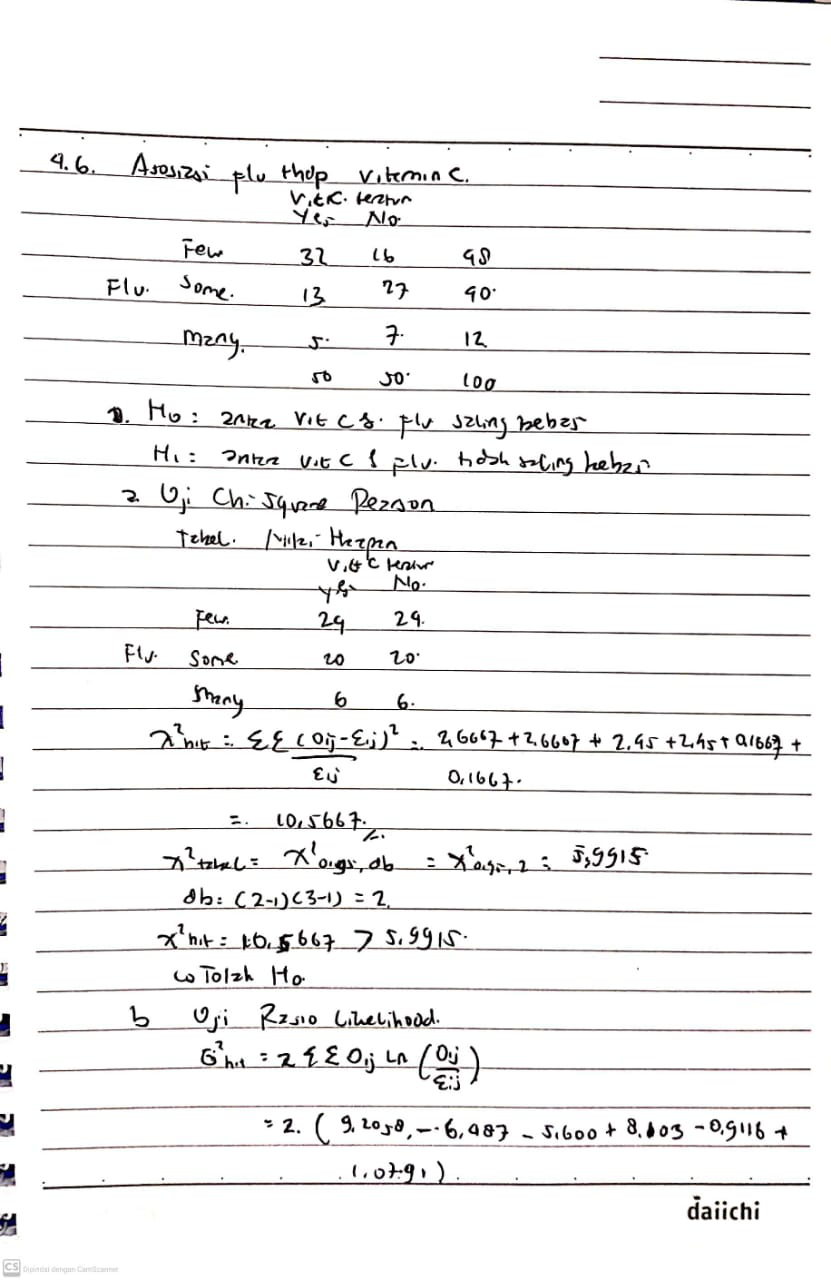 4.6. Asosiasi flu thdp vitamin C.
Vit C. teratur
Yes No.
Few 32 16 48
Flu. Some. 13 27 40.
Many. 5. 7. 12
50 50. 100
Ho: antara Vit C & flu saling bebas
H1: antara Vit C & flu. tidak saling bebas
a Uji Chi Square Pearson
Tabel. Nilai Harapan
Vit C teratur
yes No.
Few. 24 24.
Flu. Some 20 20.
Many 6 6.
χ² hit = ΣΣ (Oij-Eij)² = 2,6667 + 2,6667 + 2,45 + 2,45 + 0,1667 +
Eij 0,1667.
= 10,5667.
χ² tabel = χ² 0,95, db = χ² 0,95, 2 = 5,9915
db = (2-1)(3-1) = 2.
χ² hit = 10,5667 > 5,9915.
↳ Tolak Ho.
b Uji Rasio Likelihood.
G² hit = 2 ΣΣ Oij Ln (Oij
Eij)
= 2. ( 9,2058, - 6,487 - 5,600 + 8,103 - 0,9116 +
1,0791).
daiichi
CS Dipindai dengan CamScanner